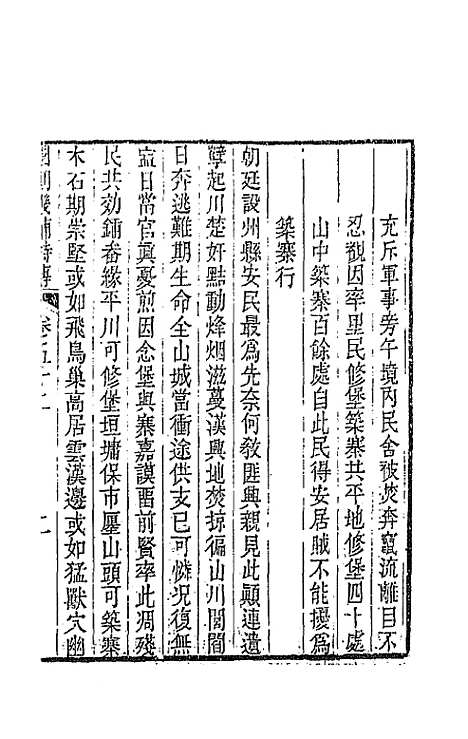 充斥軍事旁午境內民舍被焚奔竄流離目不
忍觀因率里民修堡築寨共平地修堡四十處
山中築寨百餘處自此民得安居賊不能擾爲
築寨行
朝廷設州縣安民最爲先奈何敎匪興親見此顚連遺
孽起川楚奸黠動烽烟滋蔓漢興地焚掠徧山川閭閻
日奔逃難期生命全山城當衝途供支已可憐況復無
寍日當官眞憂煎因念堡與寨嘉謨畱前賢率此凋殘
民共効鍤畚緣平川可修堡垣墉保市廛山頭可築寨
木石期崇堅或如飛鳥巢高居雲漢邊或如猛獸穴幽
國朝畿輔詩傳
卷五十二